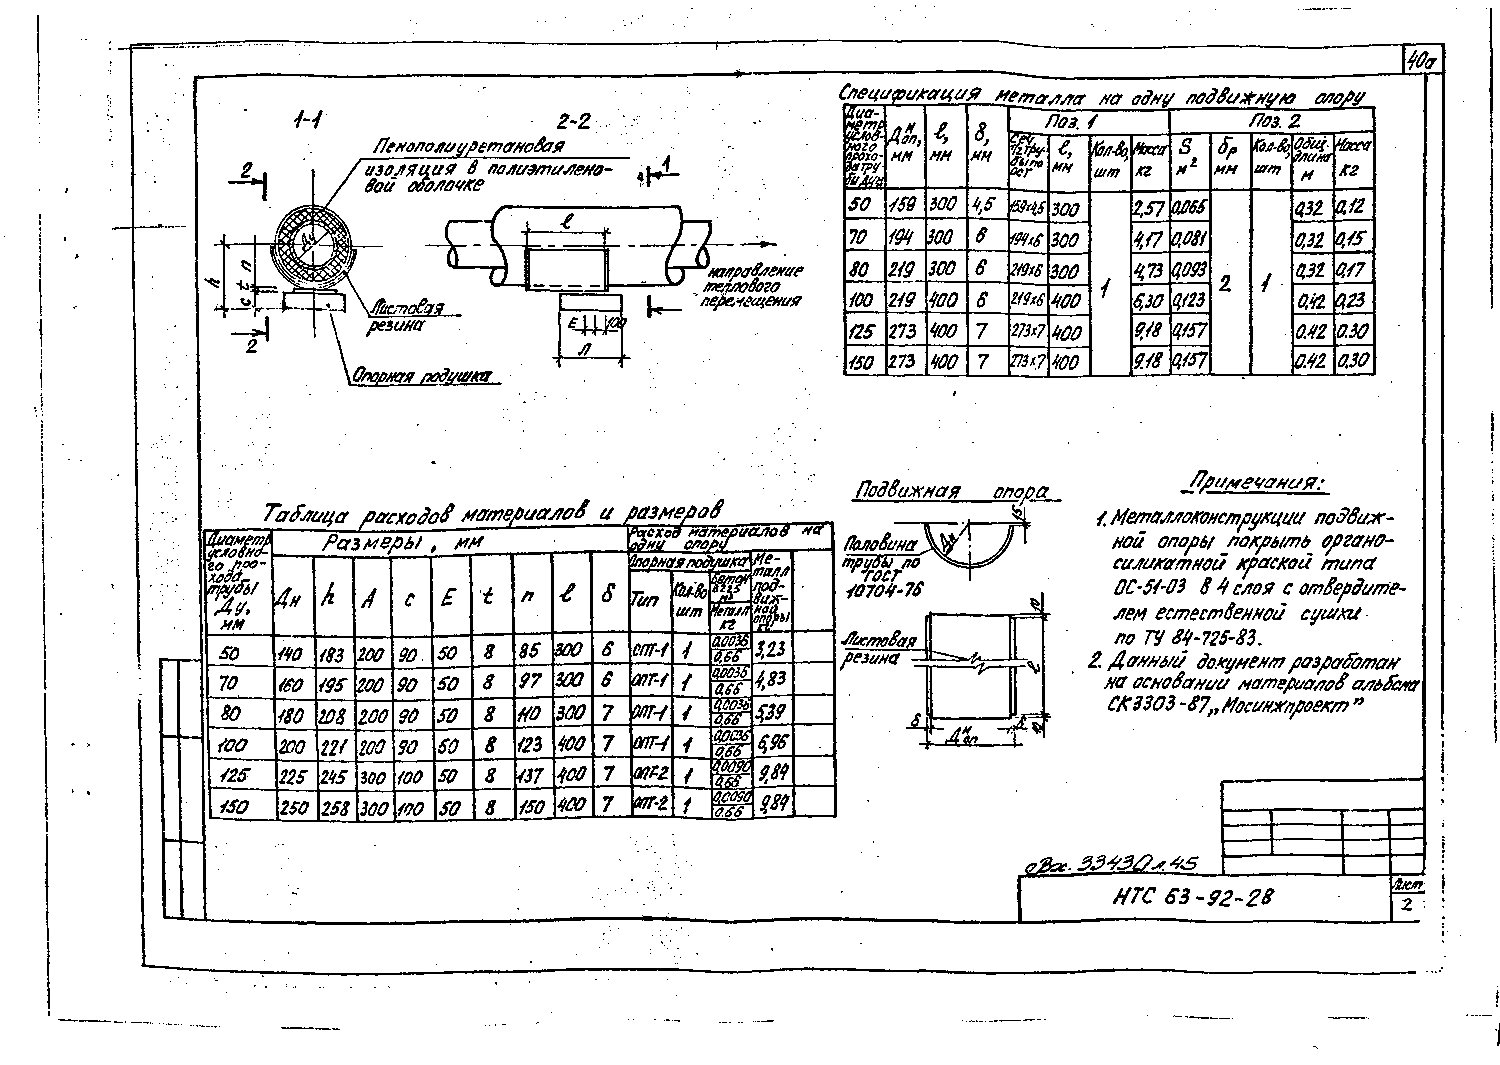 40а
1-1
2-2
Пенополиуретановая
изоляция в полиэтилено-
вой оболочке
2
2
1
ℓ
h
n
t
c
Листовая
резина
Опорная подушка
направление
теплового
перемещения
E
100
Л
Спецификация металла на одну подвижную опору
Диаметр условного прохода трубы Ду, мм | Дⁿоп, мм | ℓ, мм | δ, мм | Поз. 1 | Поз. 2
ℓ, мм | Кол-во, шт | Масса кг | S м² | δр мм | Кол-во, шт | Общ. длина м | Масса кг
50 159 300 4,5 159х4,5 300 2,57 0,065 0,32 0,12
70 194 300 6 194х6 300 4,17 0,081 0,32 0,15
80 219 300 6 219х6 300 1 4,73 0,093 2 1 0,32 0,17
100 219 400 6 219х6 400 6,30 0,123 0,42 0,23
125 273 400 7 273х7 400 9,18 0,157 0.42 0.30
150 273 400 7 273х7 400 9.18 0,157 0.42 0.30
Таблица расходов материалов и размеров
Диаметр условного прохода трубы Ду, мм | Размеры, мм | Расход материалов на одну опору
Опорная подушка | Металл подвижной опоры кг
Дн h А с Е t n ℓ δ Тип Кол-во шт
50 140 183 200 90 50 8 85 300 6 ОПТ-1 1 0,0036 0,66 3,23
70 160 195 200 90 50 8 97 300 6 ОПТ-1 1 0,0036 0,66 4,83
80 180 208 200 90 50 8 110 300 7 ОПТ-1 1 0,0036 0,66 5,39
100 200 221 200 90 50 8 123 400 7 ОПТ-1 1 0,0036 0,66 6,96
125 225 245 300 100 50 8 137 400 7 ОПТ-2 1 0,0090 0,66 9,84
150 250 258 300 100 50 8 150 400 7 ОПТ-2 1 0,0090 0.66 9,84
Подвижная опора
Половина
трубы по
ГОСТ
10704-76
Листовая
резина
Примечания:
1. Металлоконструкции подвиж-
ной опоры покрыть органо-
силикатной краской типа
ОС-51-03 в 4 слоя с отвердите-
лем естественной сушки
по ТУ 84-725-83.
2. Данный документ разработан
на основании материалов альбома
СК 3303-87 „Мосинжпроект”
33430 л. 45
НТС 63-92-28
Лист
2